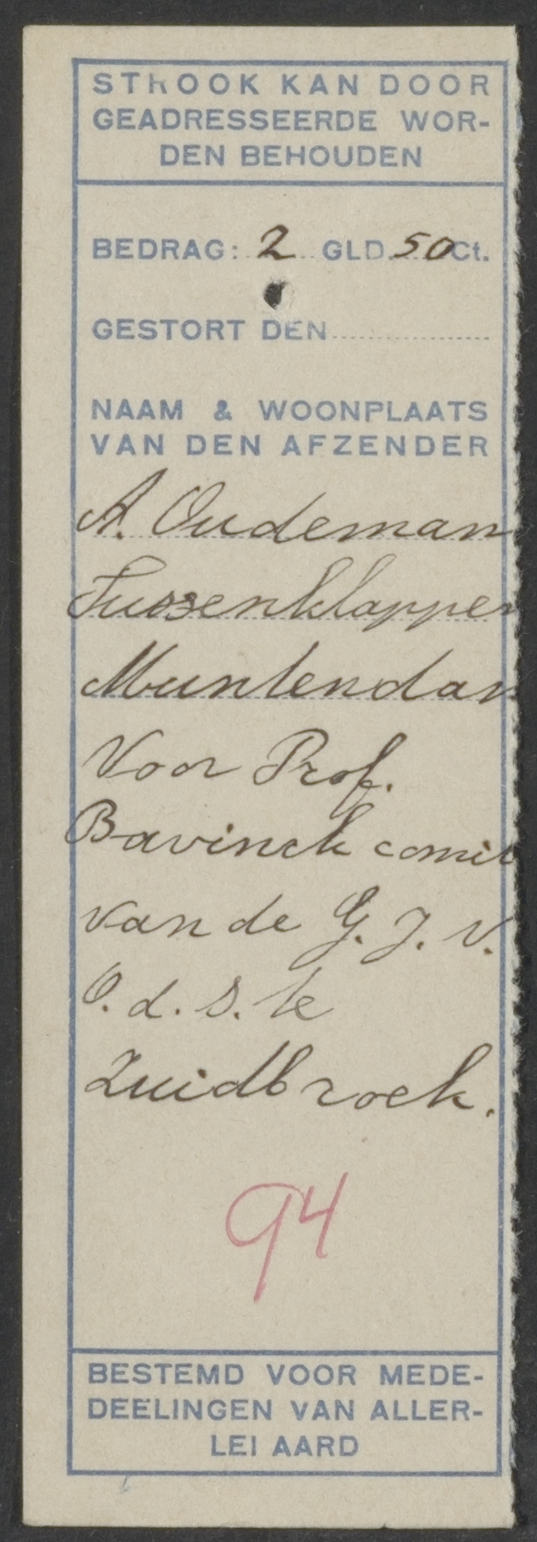 STROOK KAN DOOR
GEADRESSEERDE WOR-
DEN BEHOUDEN
BEDRAG: 2 GLD. 50 Ct.
GESTORT DEN
NAAM & WOONPLAATS
VAN DEN AFZENDER
A. Oudeman
Tussenklappen
Muntendam
Voor Prof.
Bavinck comit
van de G. J. V.
O. d. S. te
Zuidbroek.
94
BESTEMD VOOR MEDE-
DEELINGEN VAN ALLER-
LEI AARD